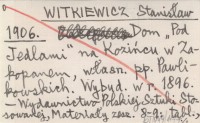 WITKIEWICZ Stanisław
1906. Dom "Pod
Jedlami" na Kozińcu w Za-
kopanem, własn. pp. Pawli-
kowskich. Wybud. w r. 1896.
— Wydawnictwo Polskiej Sztuki Sto-
sowanej, Materjały zesz. 8-9. tabl.,